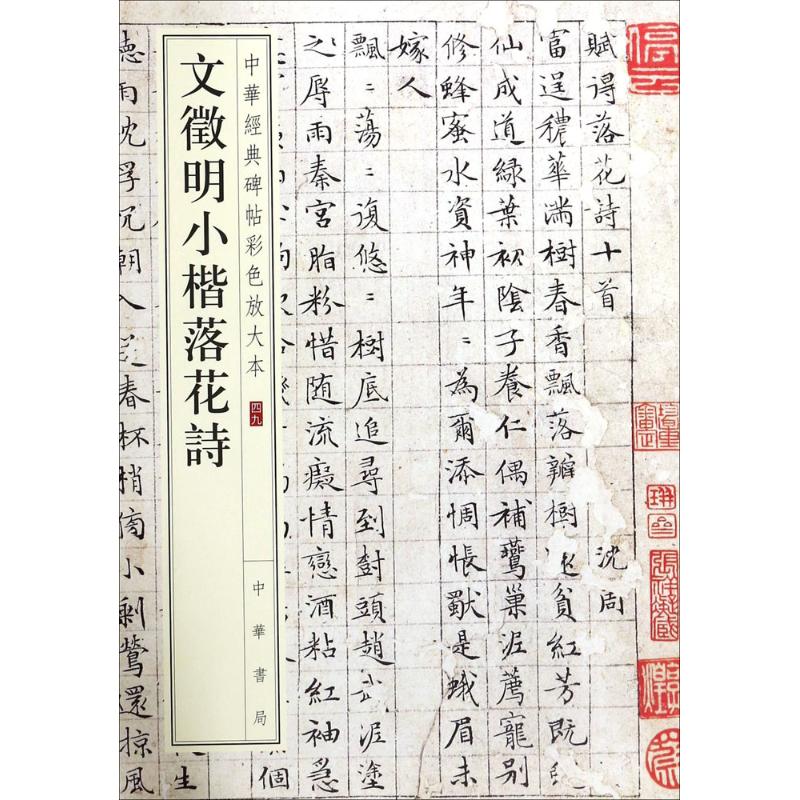 賦得落花詩十首 沈周
富逞穠華滿樹春香飄落瓣樹還貧紅芳既
仙成道綠葉初陰子養仁偶補鶯巢泥薦寵別
修蜂蜜水資神年〻為爾添惆悵獨是蛾眉未
嫁人
飄〻蕩〻復悠〻樹底追尋到樹頭趙武泥塗
之辱雨秦宮脂粉惜隨流癡情戀酒粘紅袖急
個
中華經典碑帖彩色放大本 四九
中華書局
文徵明小楷落花詩
生
雨 浮沉朝入 春杯 小剩鶯還掠風